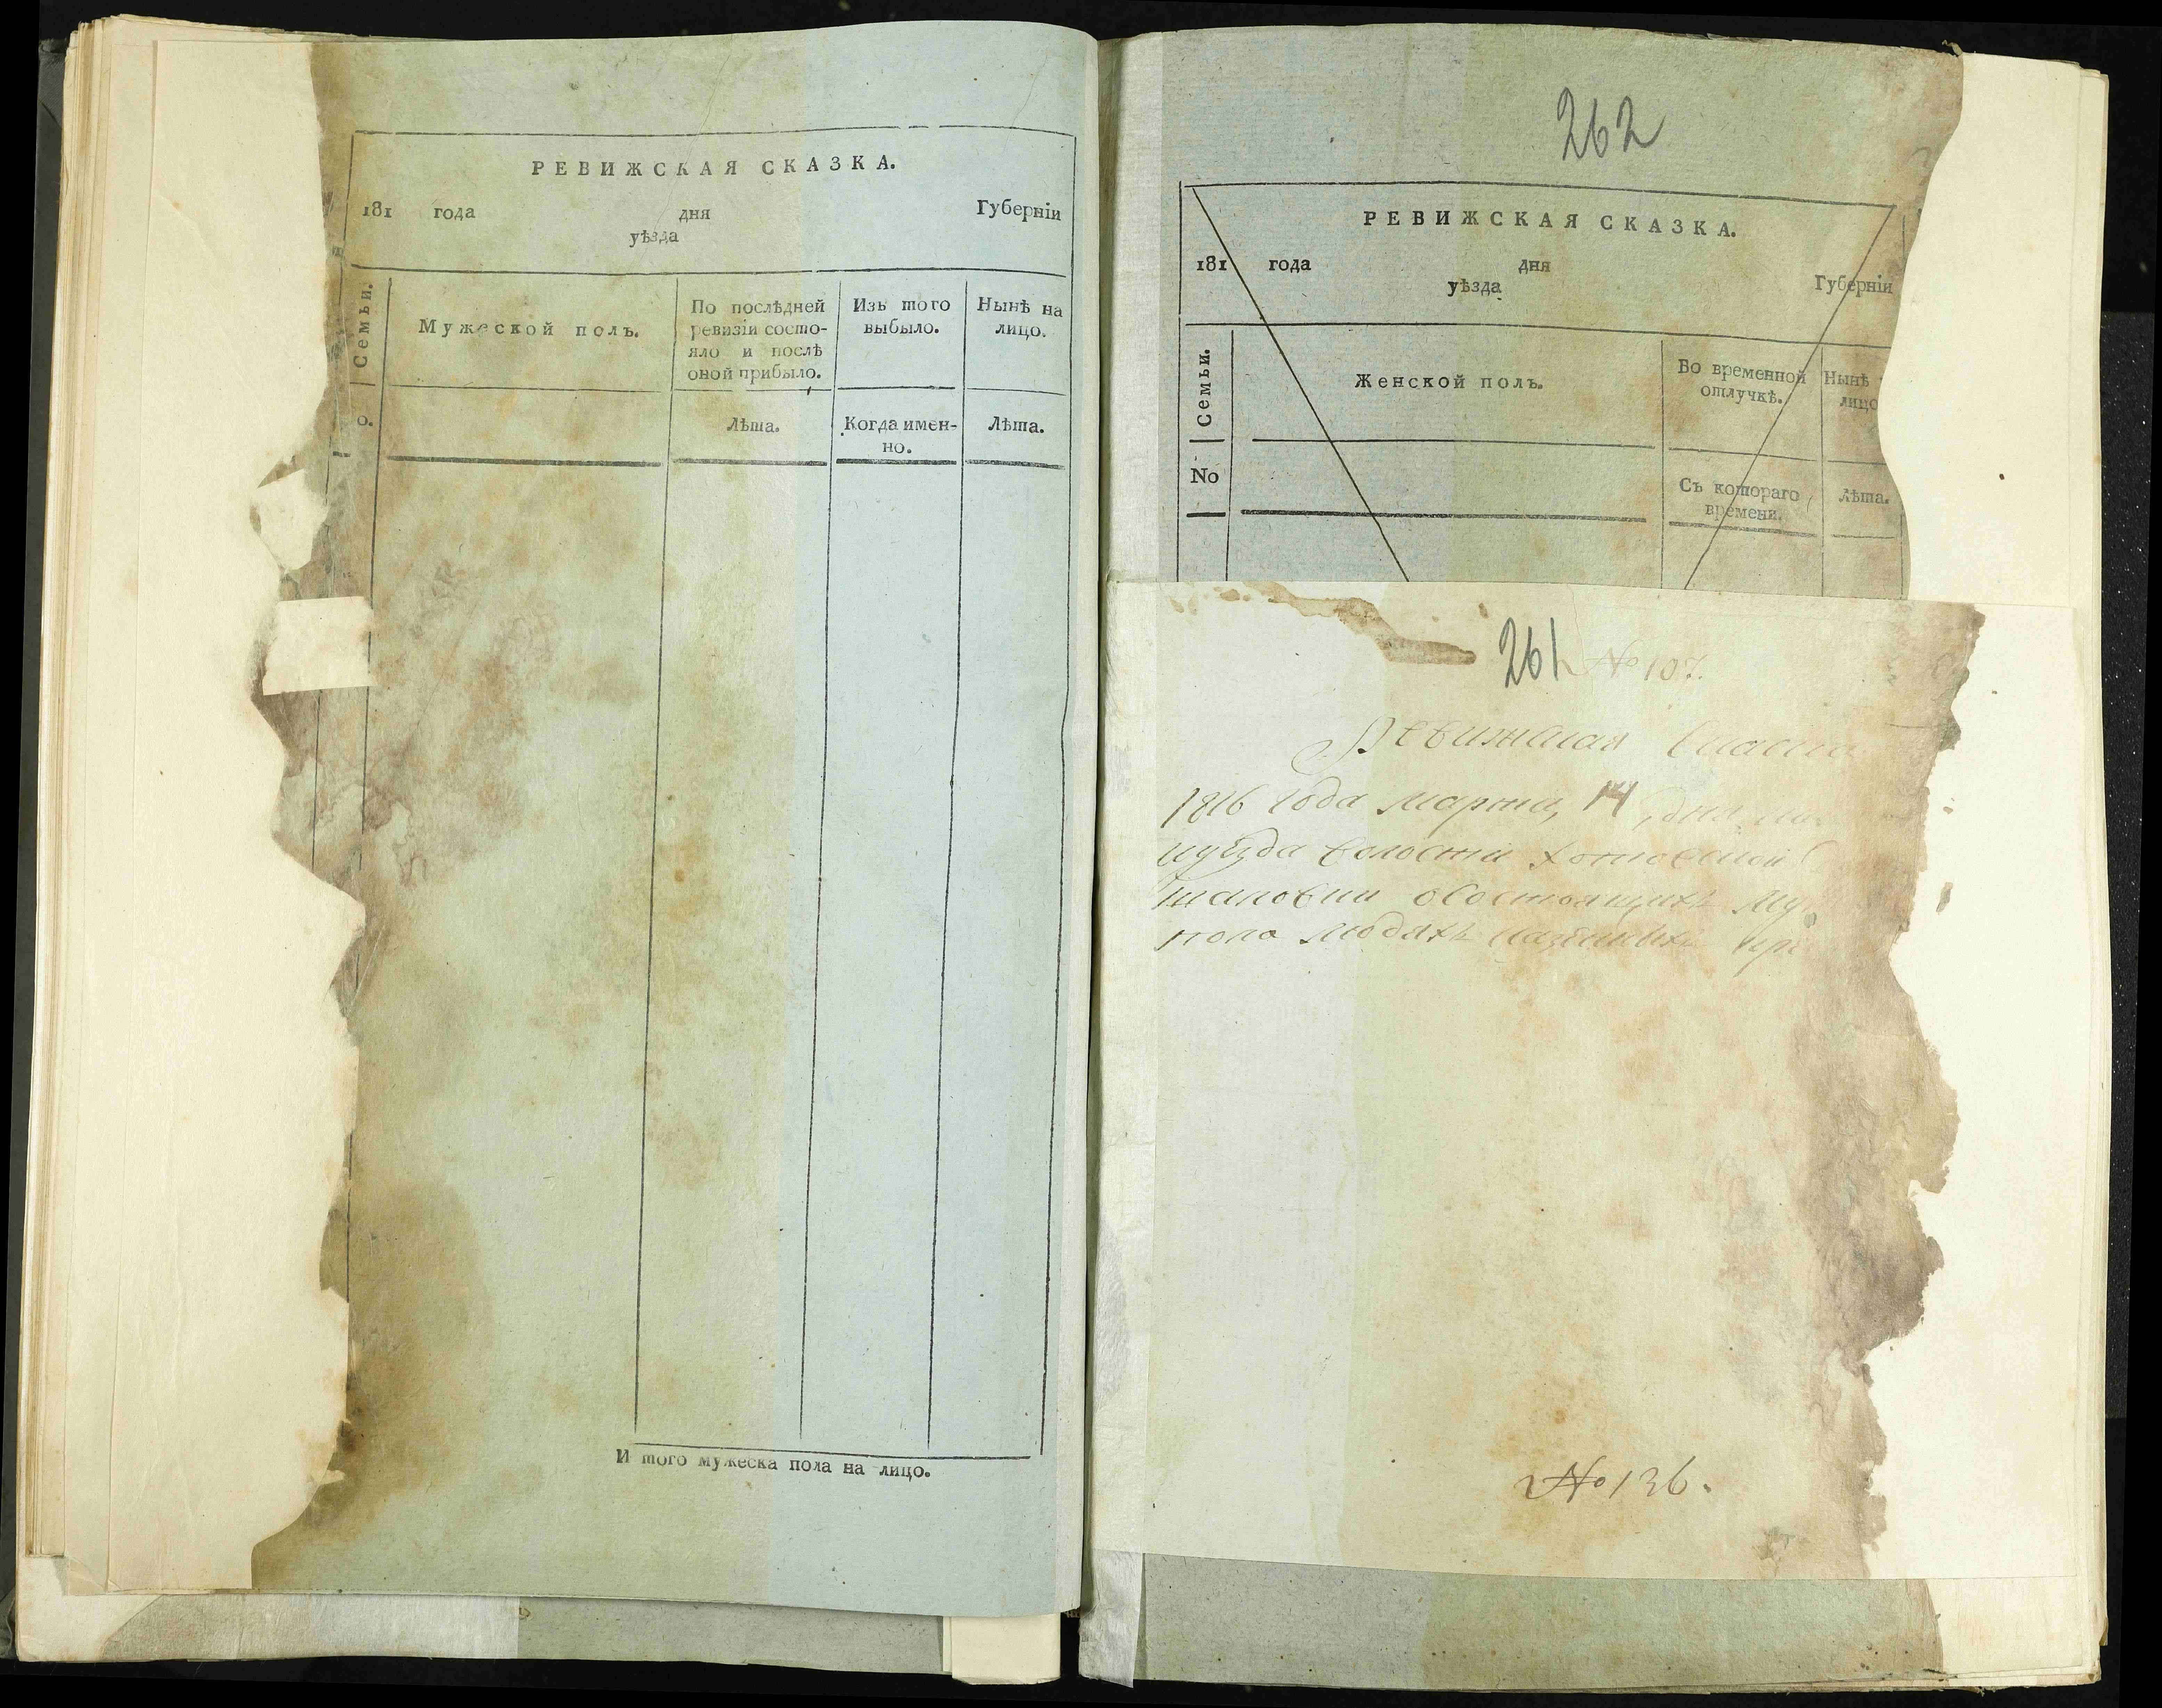 РЕВИЖСКАЯ СКАЗКА.
181 года дня Губерніи
уѣзда
Семьи.
Мужеской полъ.
По послѣдней
ревизіи состо-
яло и послѣ
оной прибыло.
Изъ того
выбыло.
Нынѣ на
лицо.
о.
Лѣта.
Когда имен-
но.
Лѣта.
И того мужеска пола на лицо.
262
РЕВИЖСКАЯ СКАЗКА.
181 года дня Губерніи
уѣзда
Семьи.
Женской полъ.
Во временной
отлучкѣ.
Нынѣ
лицо
No
Съ котораго
времени.
Лѣта.
261 No 107.
Ревижская
1816 года марта, 14, дня
уѣзда волости хотовской
о состоящихъ му
пола людяхъ казенныхъ кре
No 136.